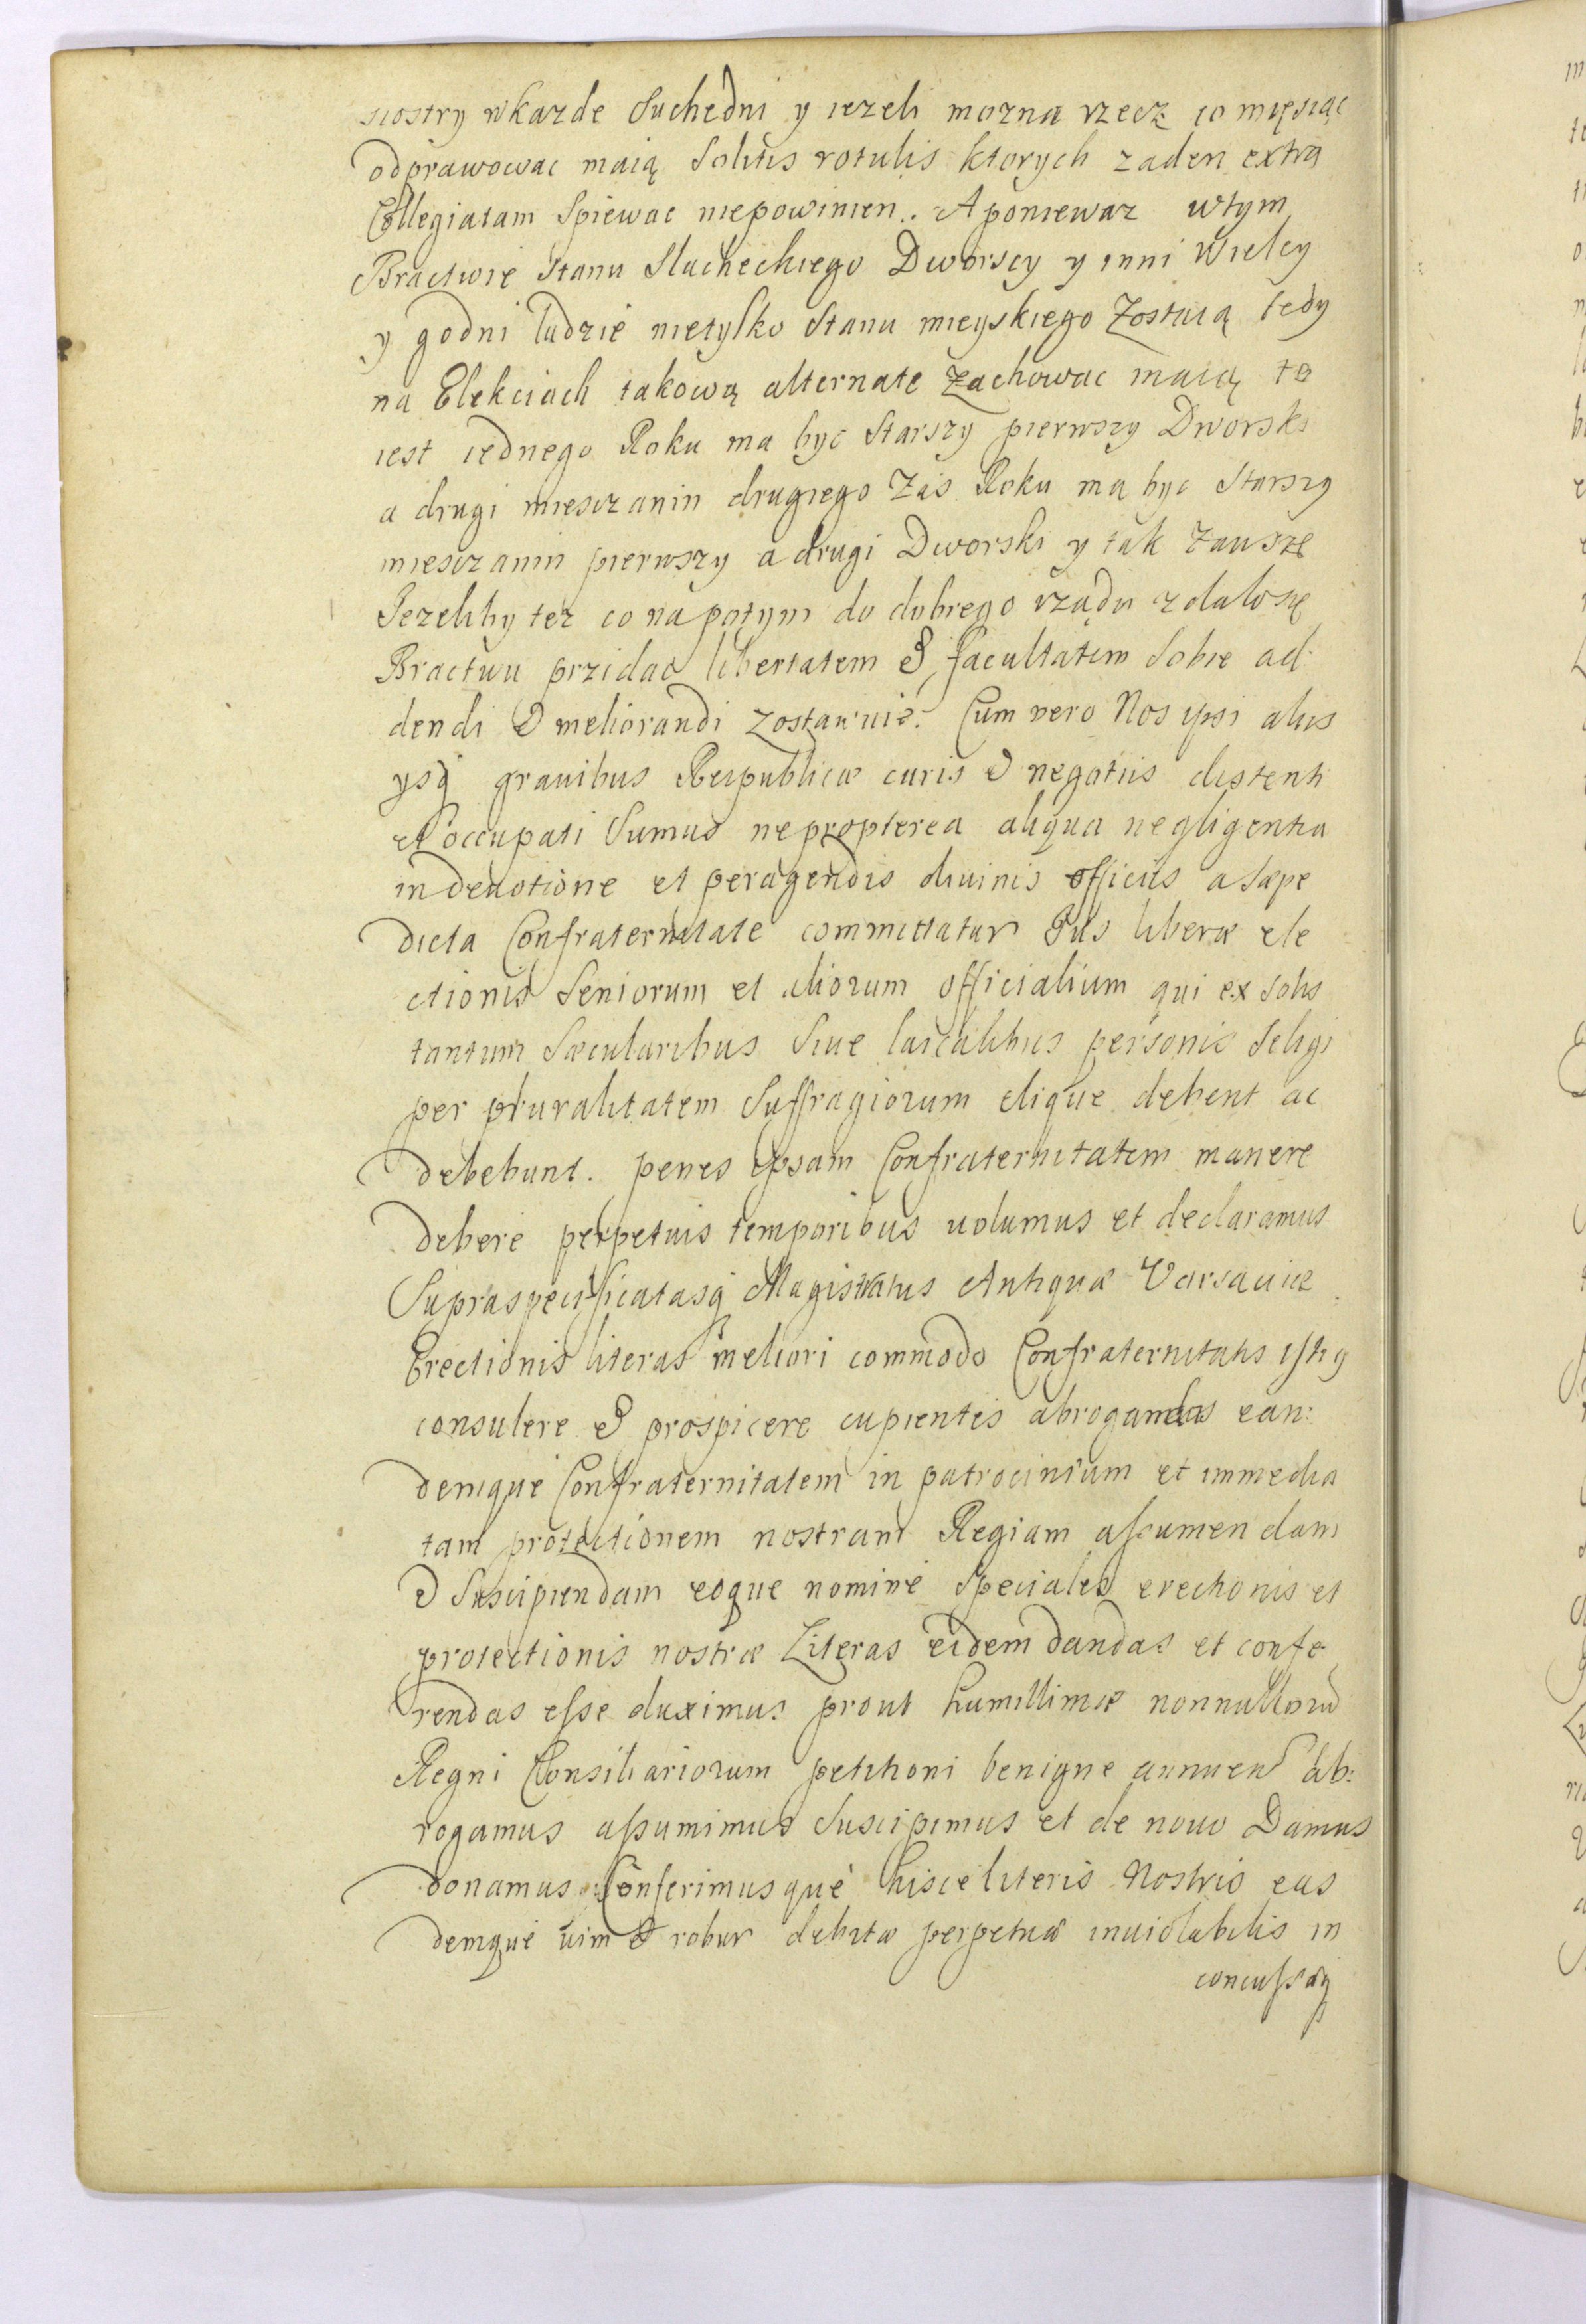 siostry wkazde Suchedni y iezeli mozna rzecz co mięsiąc
odprawowac maią Solitis rotulis ktorych zaden extra
Collegiatam Spiewac niepowinien. A poniewaz wtym
Bractwie Stanu Slacheckiego Dworscy y inni Wielcy
y godni ludzie nietylko Stanu mieyskiego Zostaią tedy
na Elekciach takową alternate Zachowac maią to
iest iednego Roku ma byc Starszy pierwszy Dworski
a drugi miesczanin drugiego Zas Roku ma byc Starszy
miesczanin pierwszy a drugi Dworski y tak Zausze
Iezeliby tez co napotym do dobrego rządu zdalosię
Bractwu przidac libertatem & facultatem Sobie ad:
dendi & meliorandi zostawuie. Cum vero Nos ipsi aliis
ysq grauibus Reipublicæ curis & negotiis distenti
et occupati Sumus ne propterea aliqua negligentia
in deuotione et peragendis diuinis officiis a Sæpe
dicta Confraternitate committatur Ius liberæ ele
ctionis Seniorum et aliorum officialium qui ex Solis
tantum Sæcularibus Siue laicalibus personis Seligi
per pluralitatem Suffragiorum eligue debent ac
debebunt. penes ipsam Confraternitatem manere
debere perpetuis temporibus uolumus et declaramus
Supraspecificatasq Magistratus Antiquæ Varsauiæ
Erectionis literas meliori commodo Confraternitatis istiq
consulere & prospicere cupientes abrogandas ean:
demque Confraternitatem in patrocinium et immedia
tam protectionem nostram Regiam assumendam
& Suscipiendam eoque nomine Speciales erectionis et
protectionis nostræ Literas eidem dandas et confe
rendas esse duximus prout humillimæ nonnullorū
Regni Consiliariorum petitioni benigne annuen ab:
rogamus assumimus Suscipimus et de nouo Damus
donamus Conferimusque hisce literis Nostris eas
demque uim & robur debitæ perpetuæ inuiolabilis in
concussæq